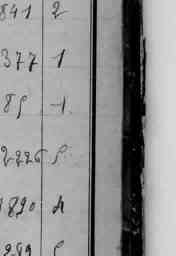 841 2
377 1
85 1
2226 5
1890 4
289 5